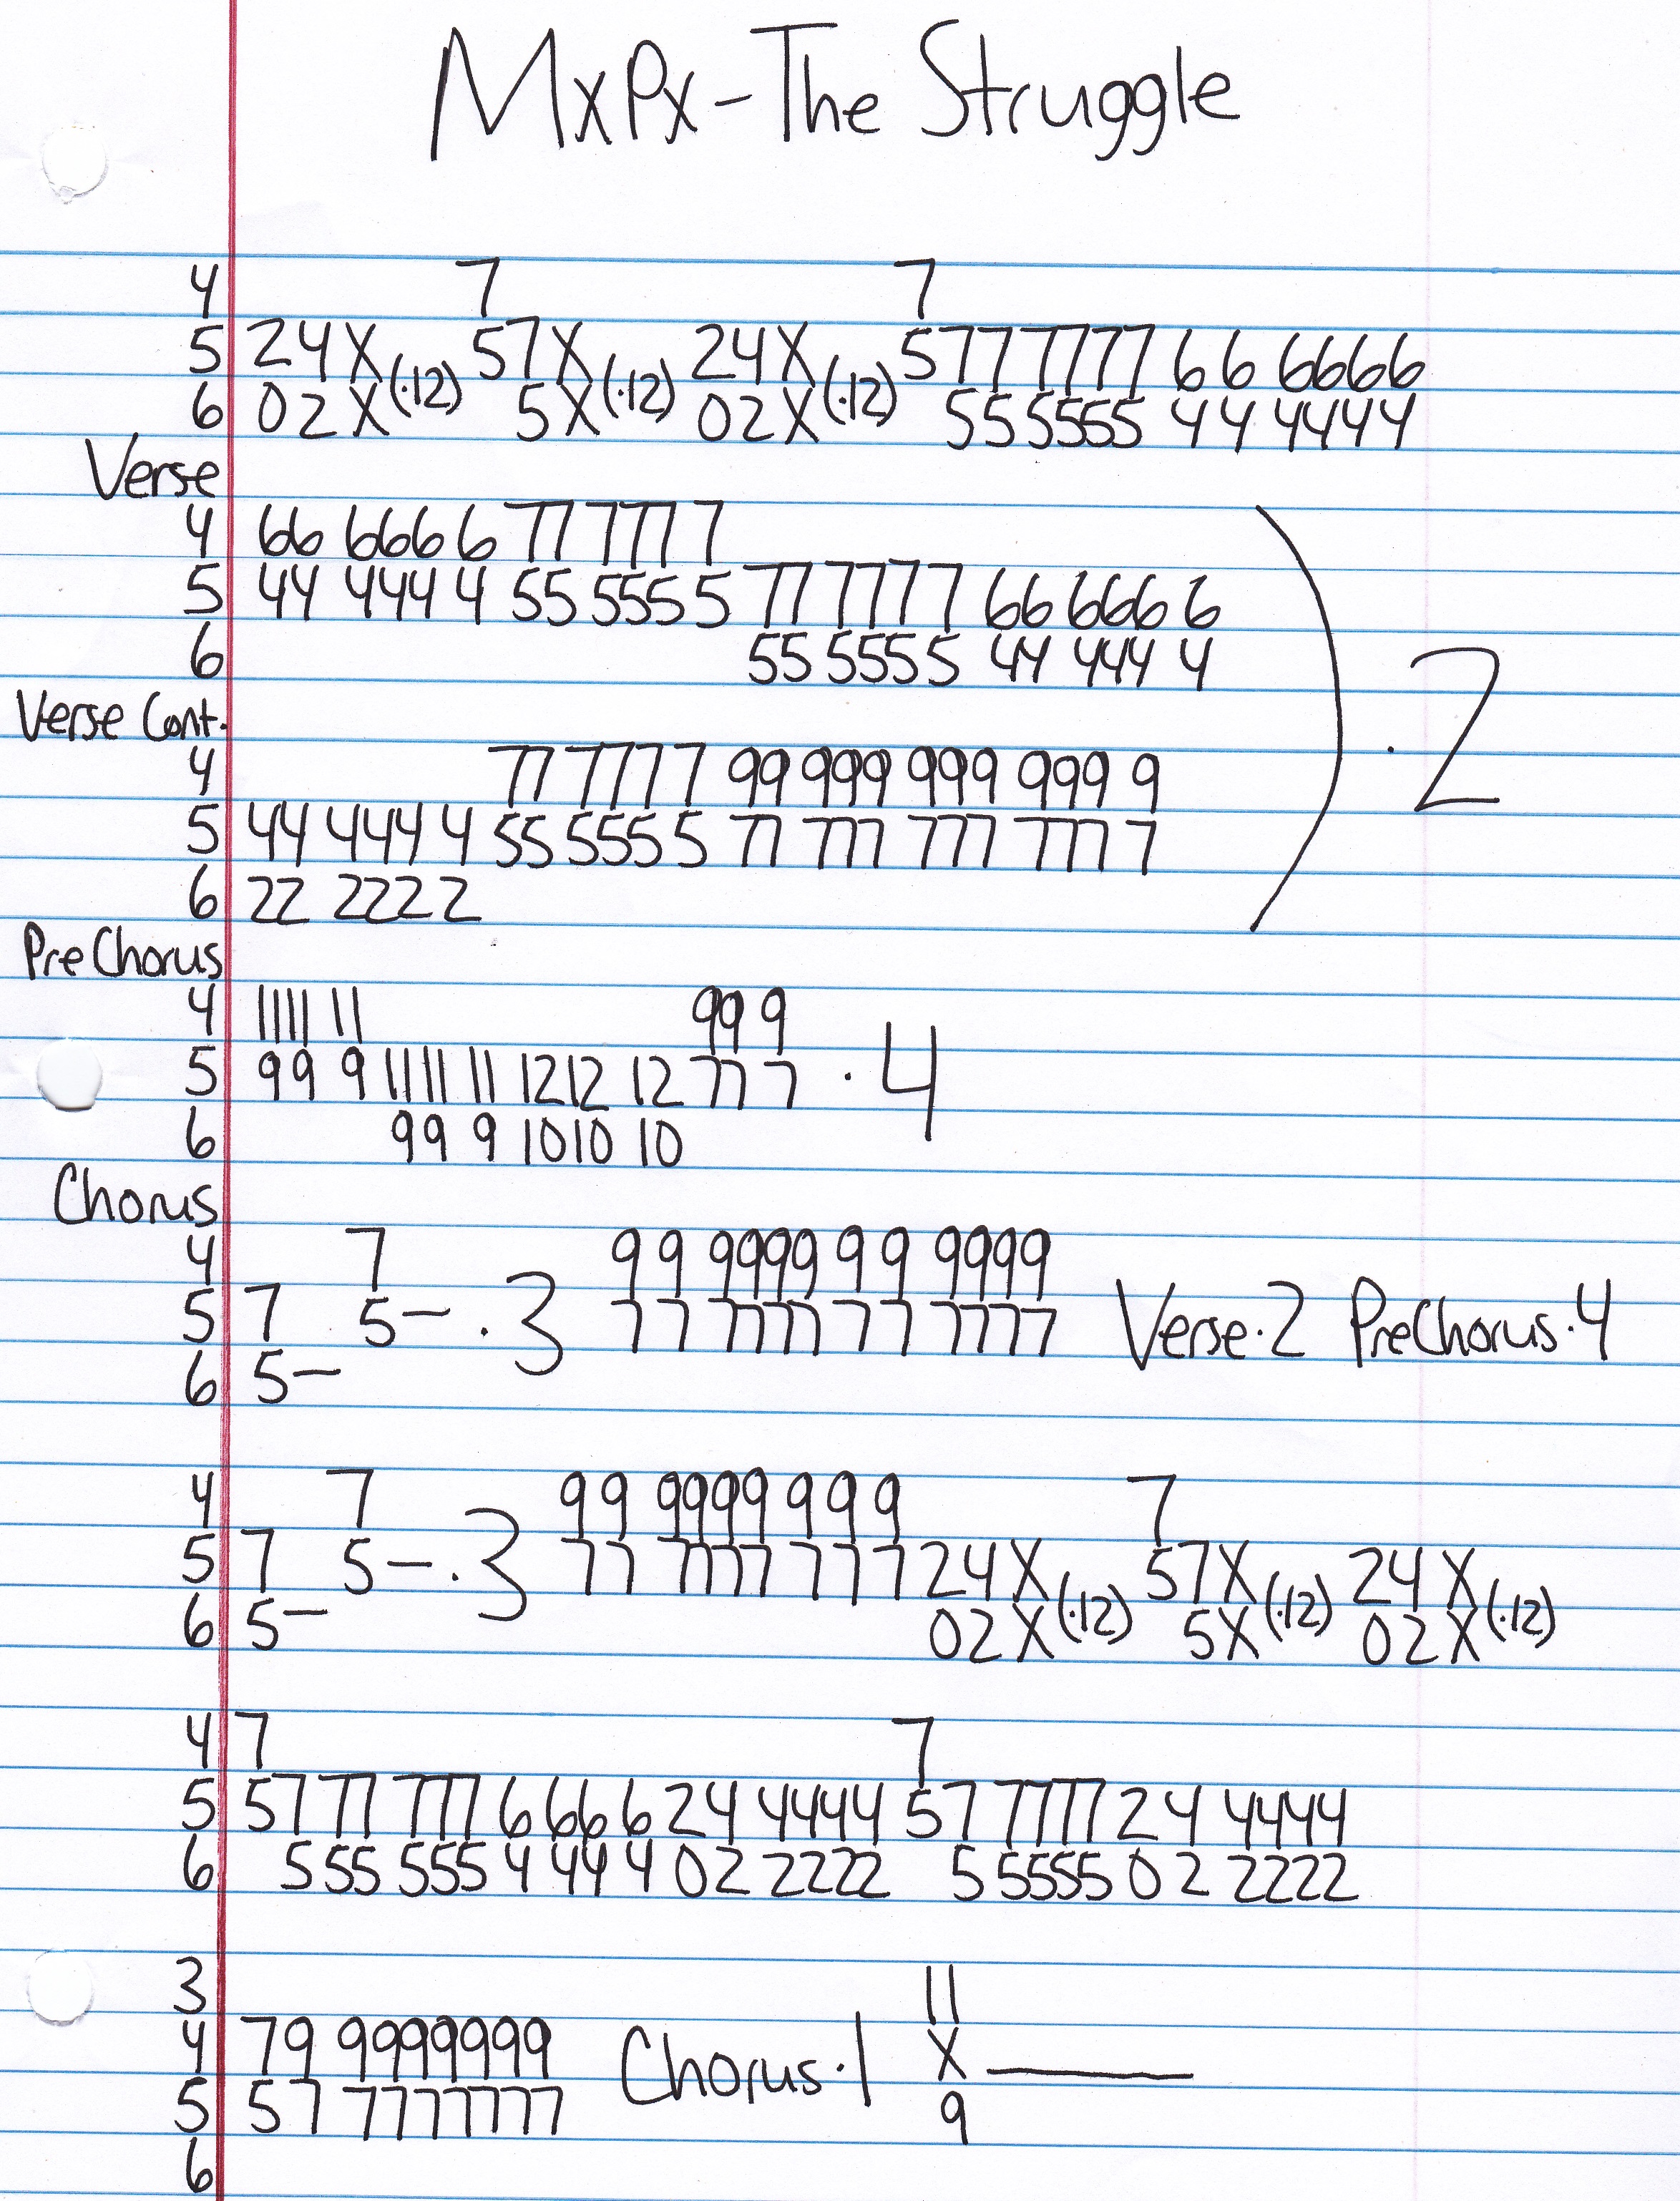 MxPx-The Struggle
4 7 7
5 24X(·12) 57X(·12) 24X(·12) 577 77777 66 6666
6 02X 5X 02X 555555 44 4444
Verse
4 66 6666 77 7777
5 44 4444 55 5555 77 7777 66 6666
6 55 5555 44 4444
·2
Verse Cont.
4 77 7777 99 999 999 999 9
5 44 4444 55 5555 77 777 777 777 7
6 22 2222
PreChorus
4 1111 11 99 9
5 99 9 1111 11 1212 12 77 7 ·4
6 99 9 1010 10
Chorus
4 7 9 9 9999 9 9 9999
5 7 5- ·3 7 7 7777 7 7 7777 Verse·2 PreChorus·4
6 5-
4 7 99 9999 999 7
5 7 5- ·3 77 7777 777 24X(·12) 57X(·12) 24X(·12)
6 5- 02X 5X 02X
4 7 7
5 57 77 777 6 66 6 24 4444 57 7777 24 4444
6 555 555 4 44 4 02 2222 5 5555 02 2222
3 11
4 79 9999999 Chorus·1 X ____
5 57 7777777 9
6